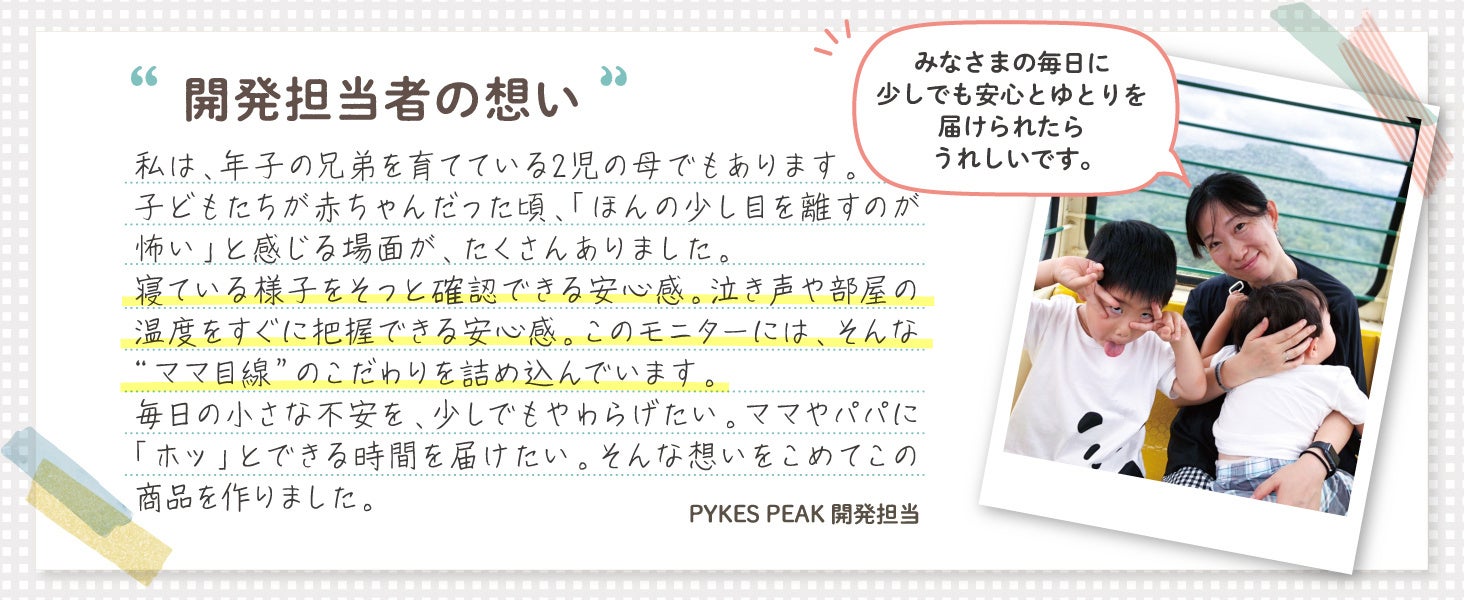 “ 開発担当者の想い ”
みなさまの毎日に
少しでも安心とゆとりを
届けられたら
うれしいです。
私は、年子の兄弟を育てている2児の母でもあります。
子どもたちが赤ちゃんだった頃、「ほんの少し目を離すのが
怖い」と感じる場面が、たくさんありました。
寝ている様子をそっと確認できる安心感。泣き声や部屋の
温度をすぐに把握できる安心感。このモニターには、そんな
“ママ目線”のこだわりを詰め込んでいます。
毎日の小さな不安を、少しでもやわらげたい。ママやパパに
「ホッ」とできる時間を届けたい。そんな想いをこめてこの
商品を作りました。
PYKES PEAK 開発担当